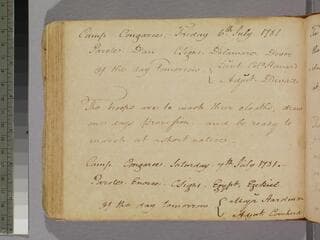 Camp Congarees Friday 6th July 1781
Parole Dan CSigns Delaware Dover
of the day Tomorrow { Lieut Colo Howard
{ Adjut
The troops are to wash their cloaths, draw
one days provision, and be ready to
march at a short notice.
Camp Congarees Saturday 7th July 1781
Parole CSigns, Egypt, Ezekiel
of the day tomorrow { Major Hardman
Adjut